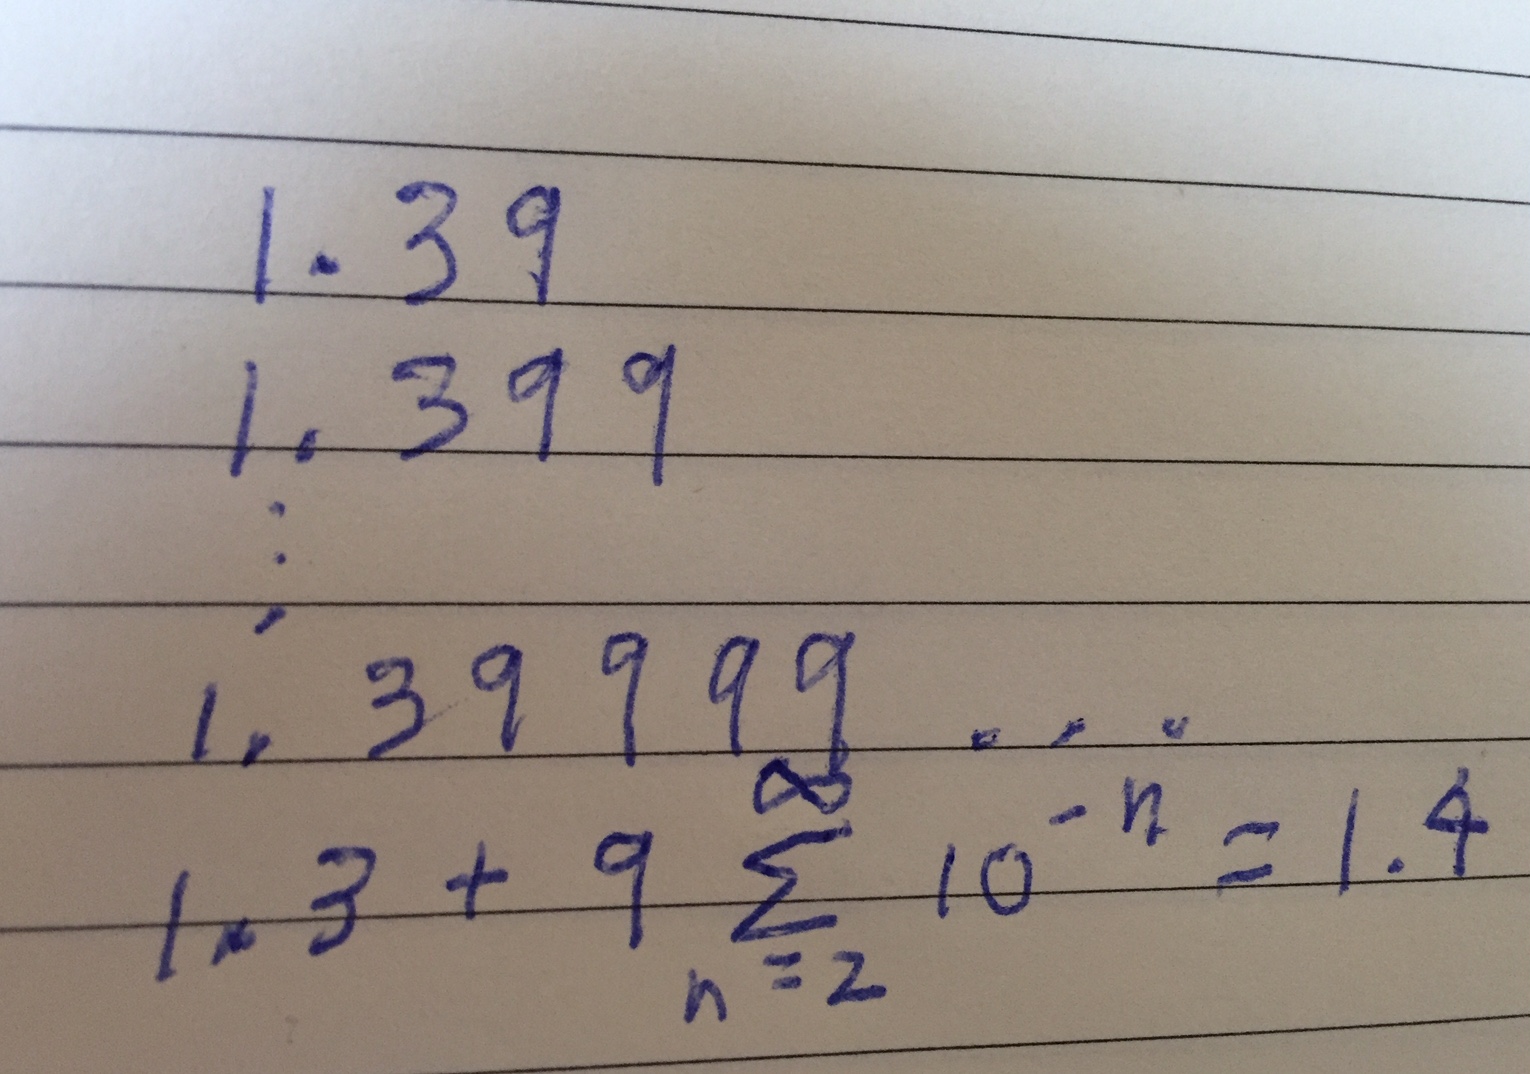 1.39
1.399
⋮
1.39999...
1.3 + 9 ∞∑n=2 10^-n = 1.4